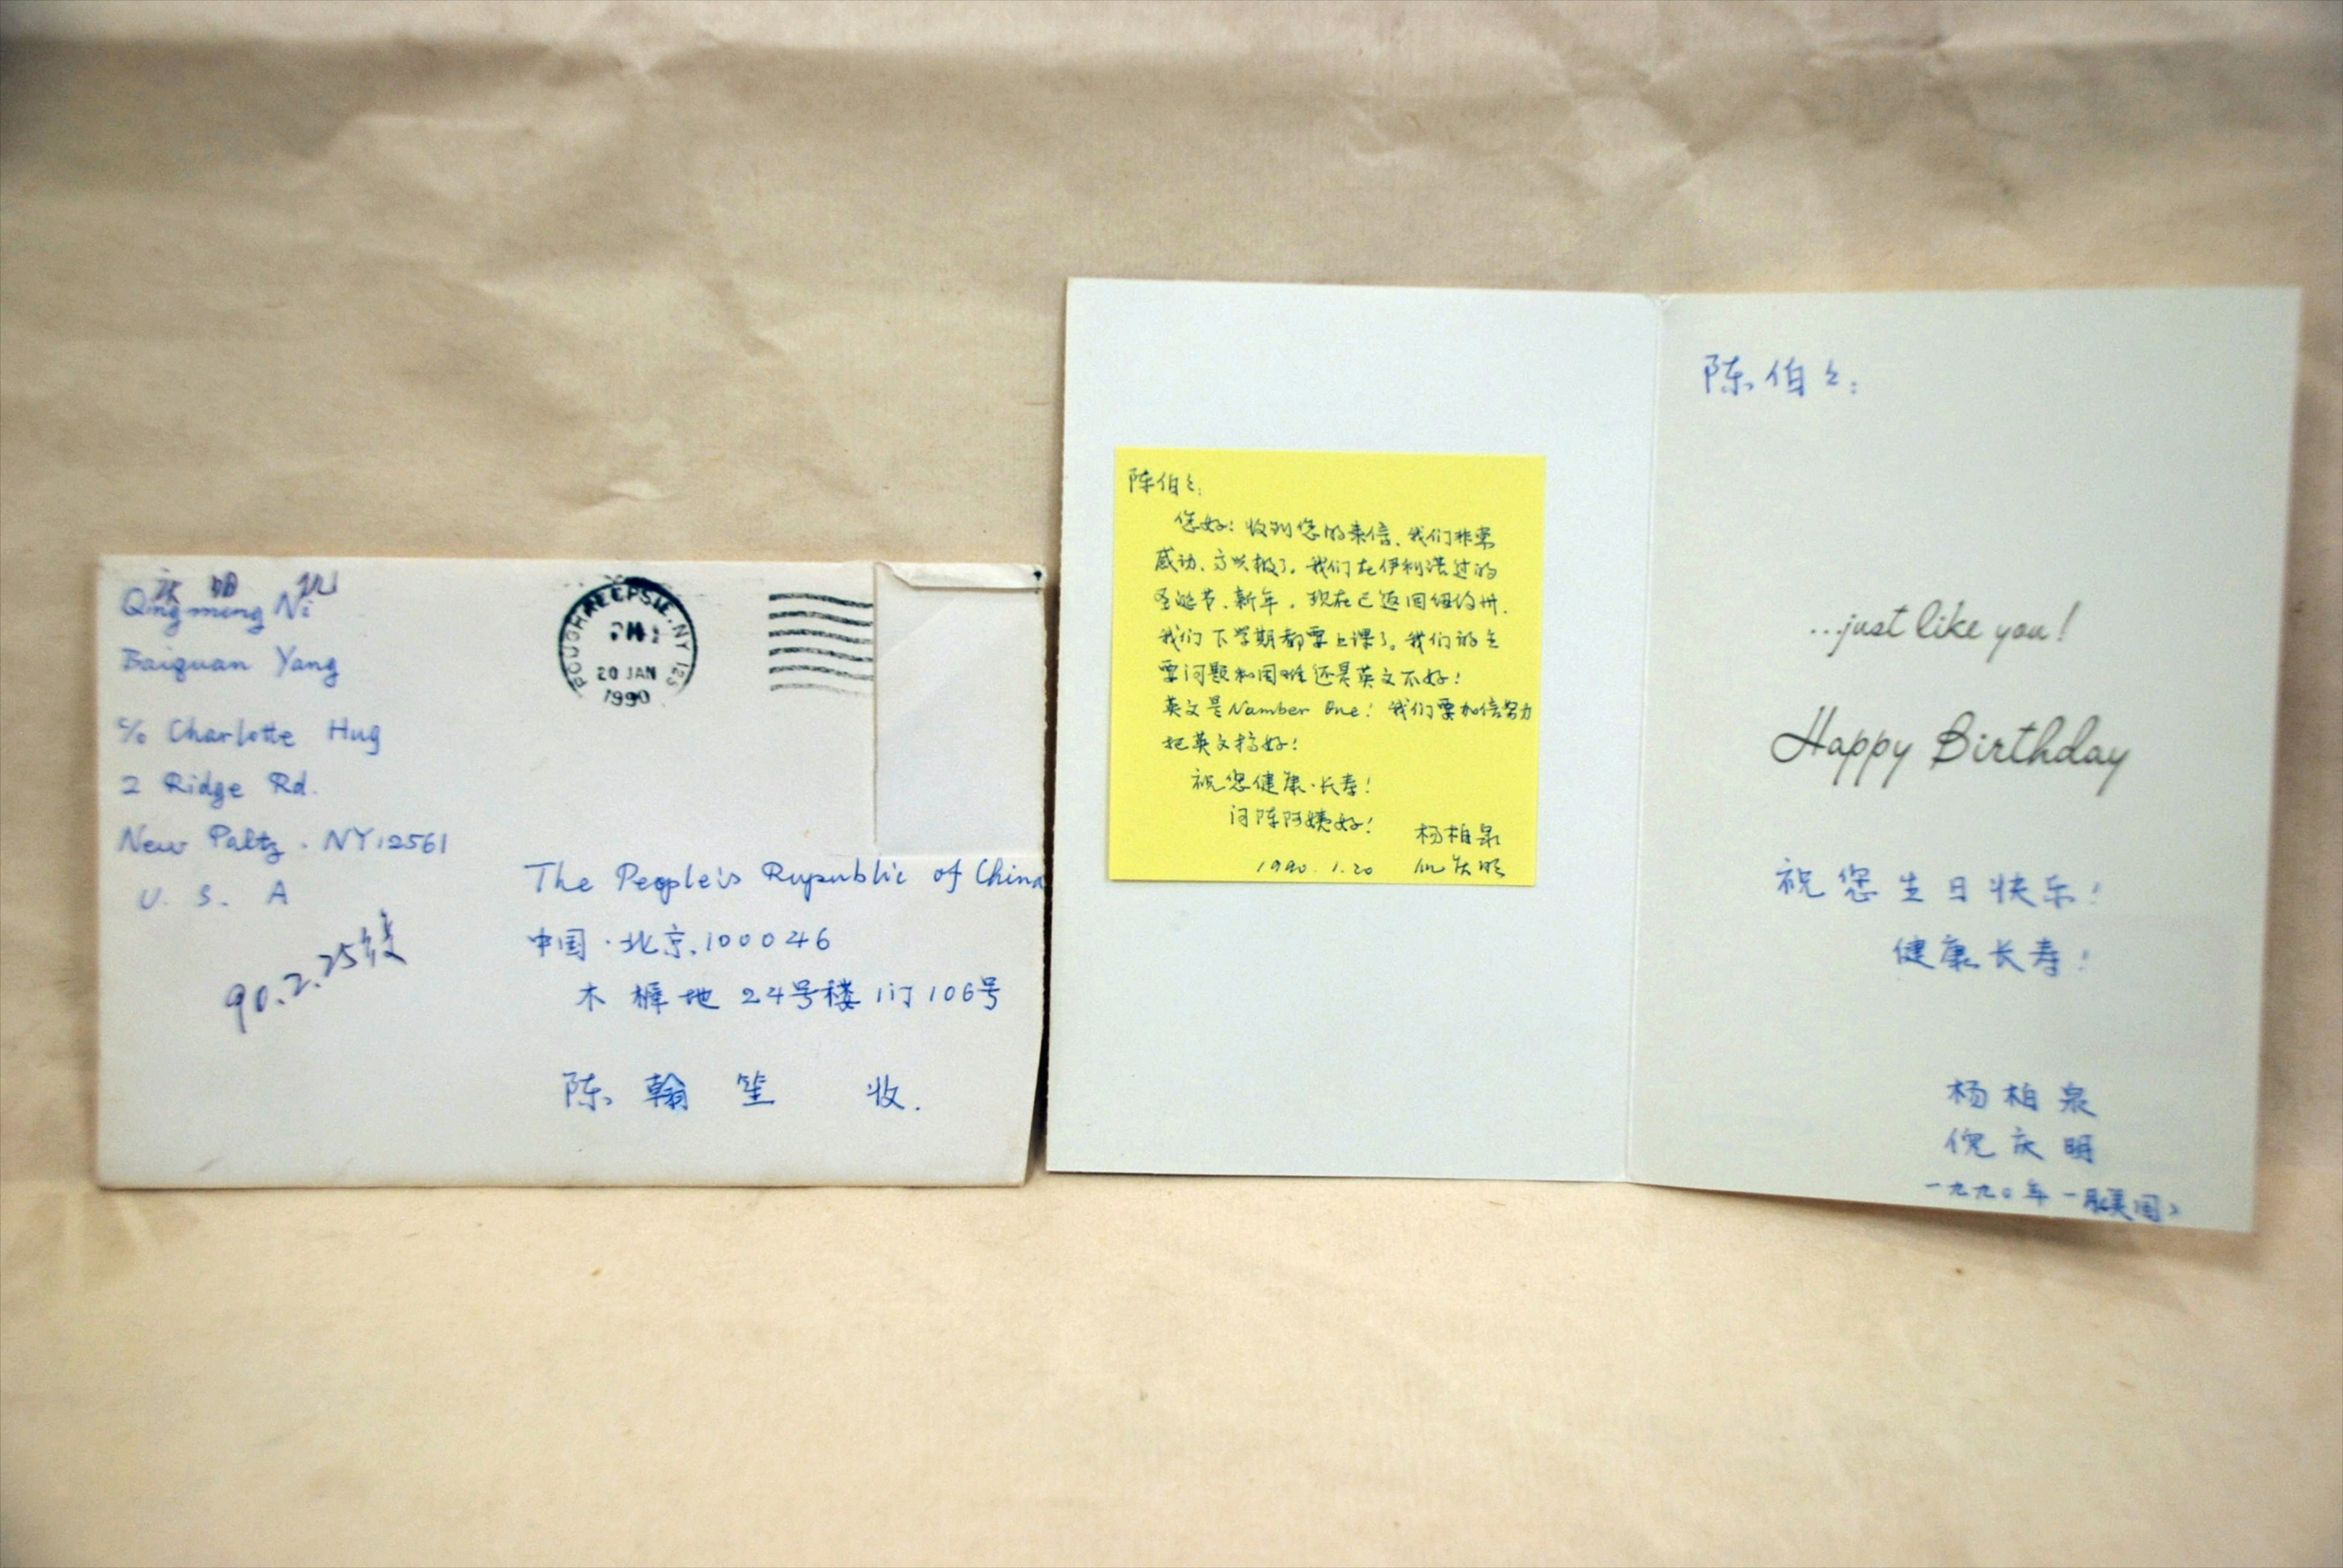 Qingming Ni
Baiquan Yang
c/o Charlotte Hug
2 Ridge Rd.
New Paltz . NY12561
U. S. A
90.2.25
POUGHKEEPSIE, NY 125
PM
20 JAN
1990
The People's Rupublic of China
中国·北京.100046
木樨地24号楼1门106号
陈翰笙 收.
陈伯々:
您好!收到您的来信、我们非常
感动、高兴极了。我们在伊利诺过的
圣诞节、新年。现在已返回纽约州.
我们下学期都要上课了。我们的主
要问题和困难还是英文不好!
英文是Number One!我们要加倍努力
把英文搞好!
祝您健康·长寿!
问陈阿姨好!
杨柏泉
1990.1.20 倪庆明
陈伯々:
...just like you!
Happy Birthday
祝您生日快乐!
健康长寿!
杨柏泉
倪庆明
一九九〇年一月美国